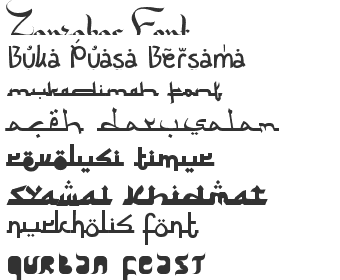 Zanzabar Font
Buka Puasa Bersama
mukadimah font
aceh darusalam
revolusi timur
syawal khidmat
nurkholis font
qurban feast